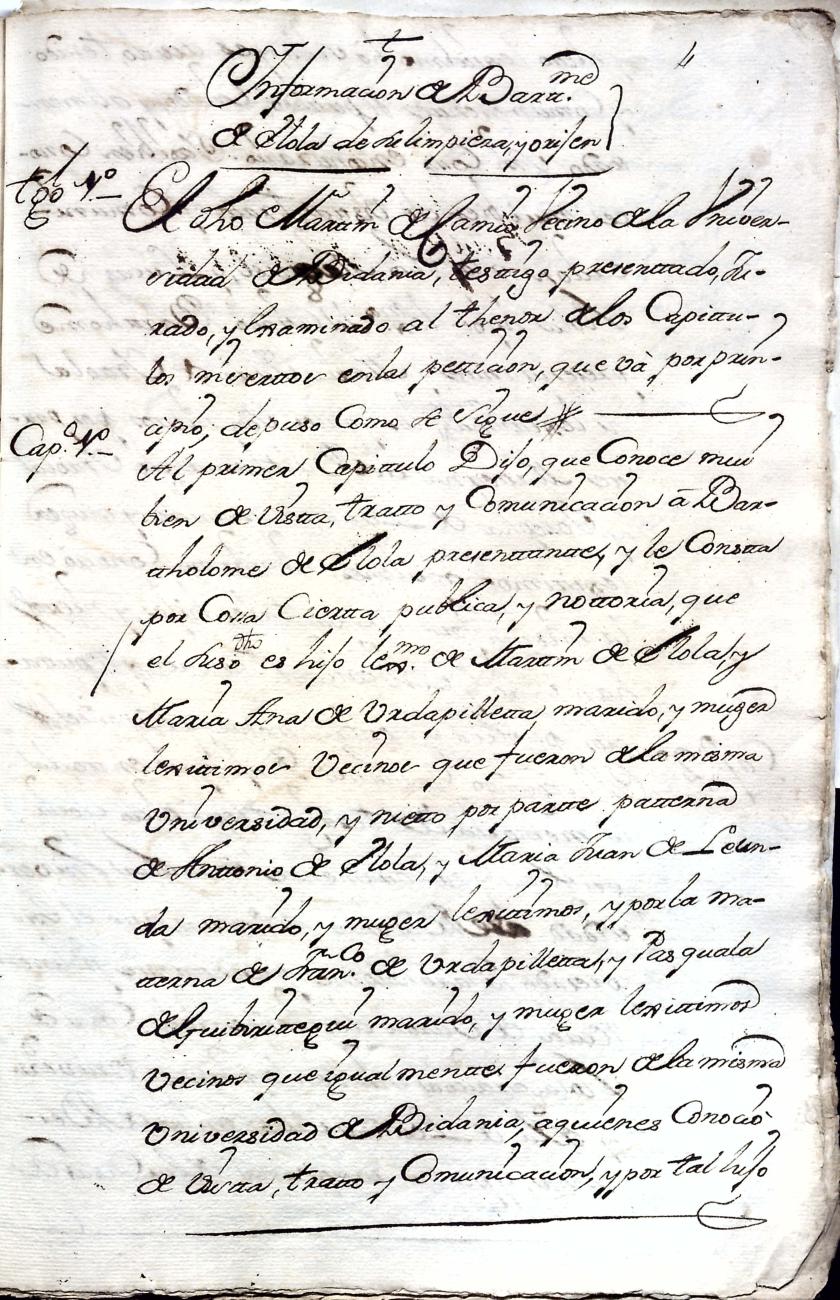 4
Informacion de Barr.me
de Olola de su limpieza, y orijen
tgo 1º
El dho Martin de Lamia Vecino de la Univer-
sidad de Bidania, testigo presenttado, Ju-
rado, y Examinado al thenor de los Capittu-
los inserttos en la petticion, que và por prin-
cipio, depuso Como se sigue
Cap.º 1º
Al primer Capittulo Dijo, que Conoce mui
bien de vistta, tratto y Comunicacion â Bar-
tholome de Olola presenttante, y le Constta
por Cosa Ciertta publica, y nottoria, que
el suso dho es hijo lexmo. de Marttin de Olola, y
Maria Ana de Urdapilletta marido, y muger
lexittimos Vecinos que fueron de la misma
Universidad, y nietto por partte patterna
de Anttonio de Olola, y Maria Juan de Leun-
da marido, y muger lexittimos, y por la ma-
tterna de Fran.co de Urdapilletta, y Pasquala
de Guibiritteguii marido, y muger lexittimos
Vecinos que igualmentte fueron de la misma
Universidad de Bidania, aquienes Conociò
de Vistta, tratto y Comunicacion, y por tal hijo